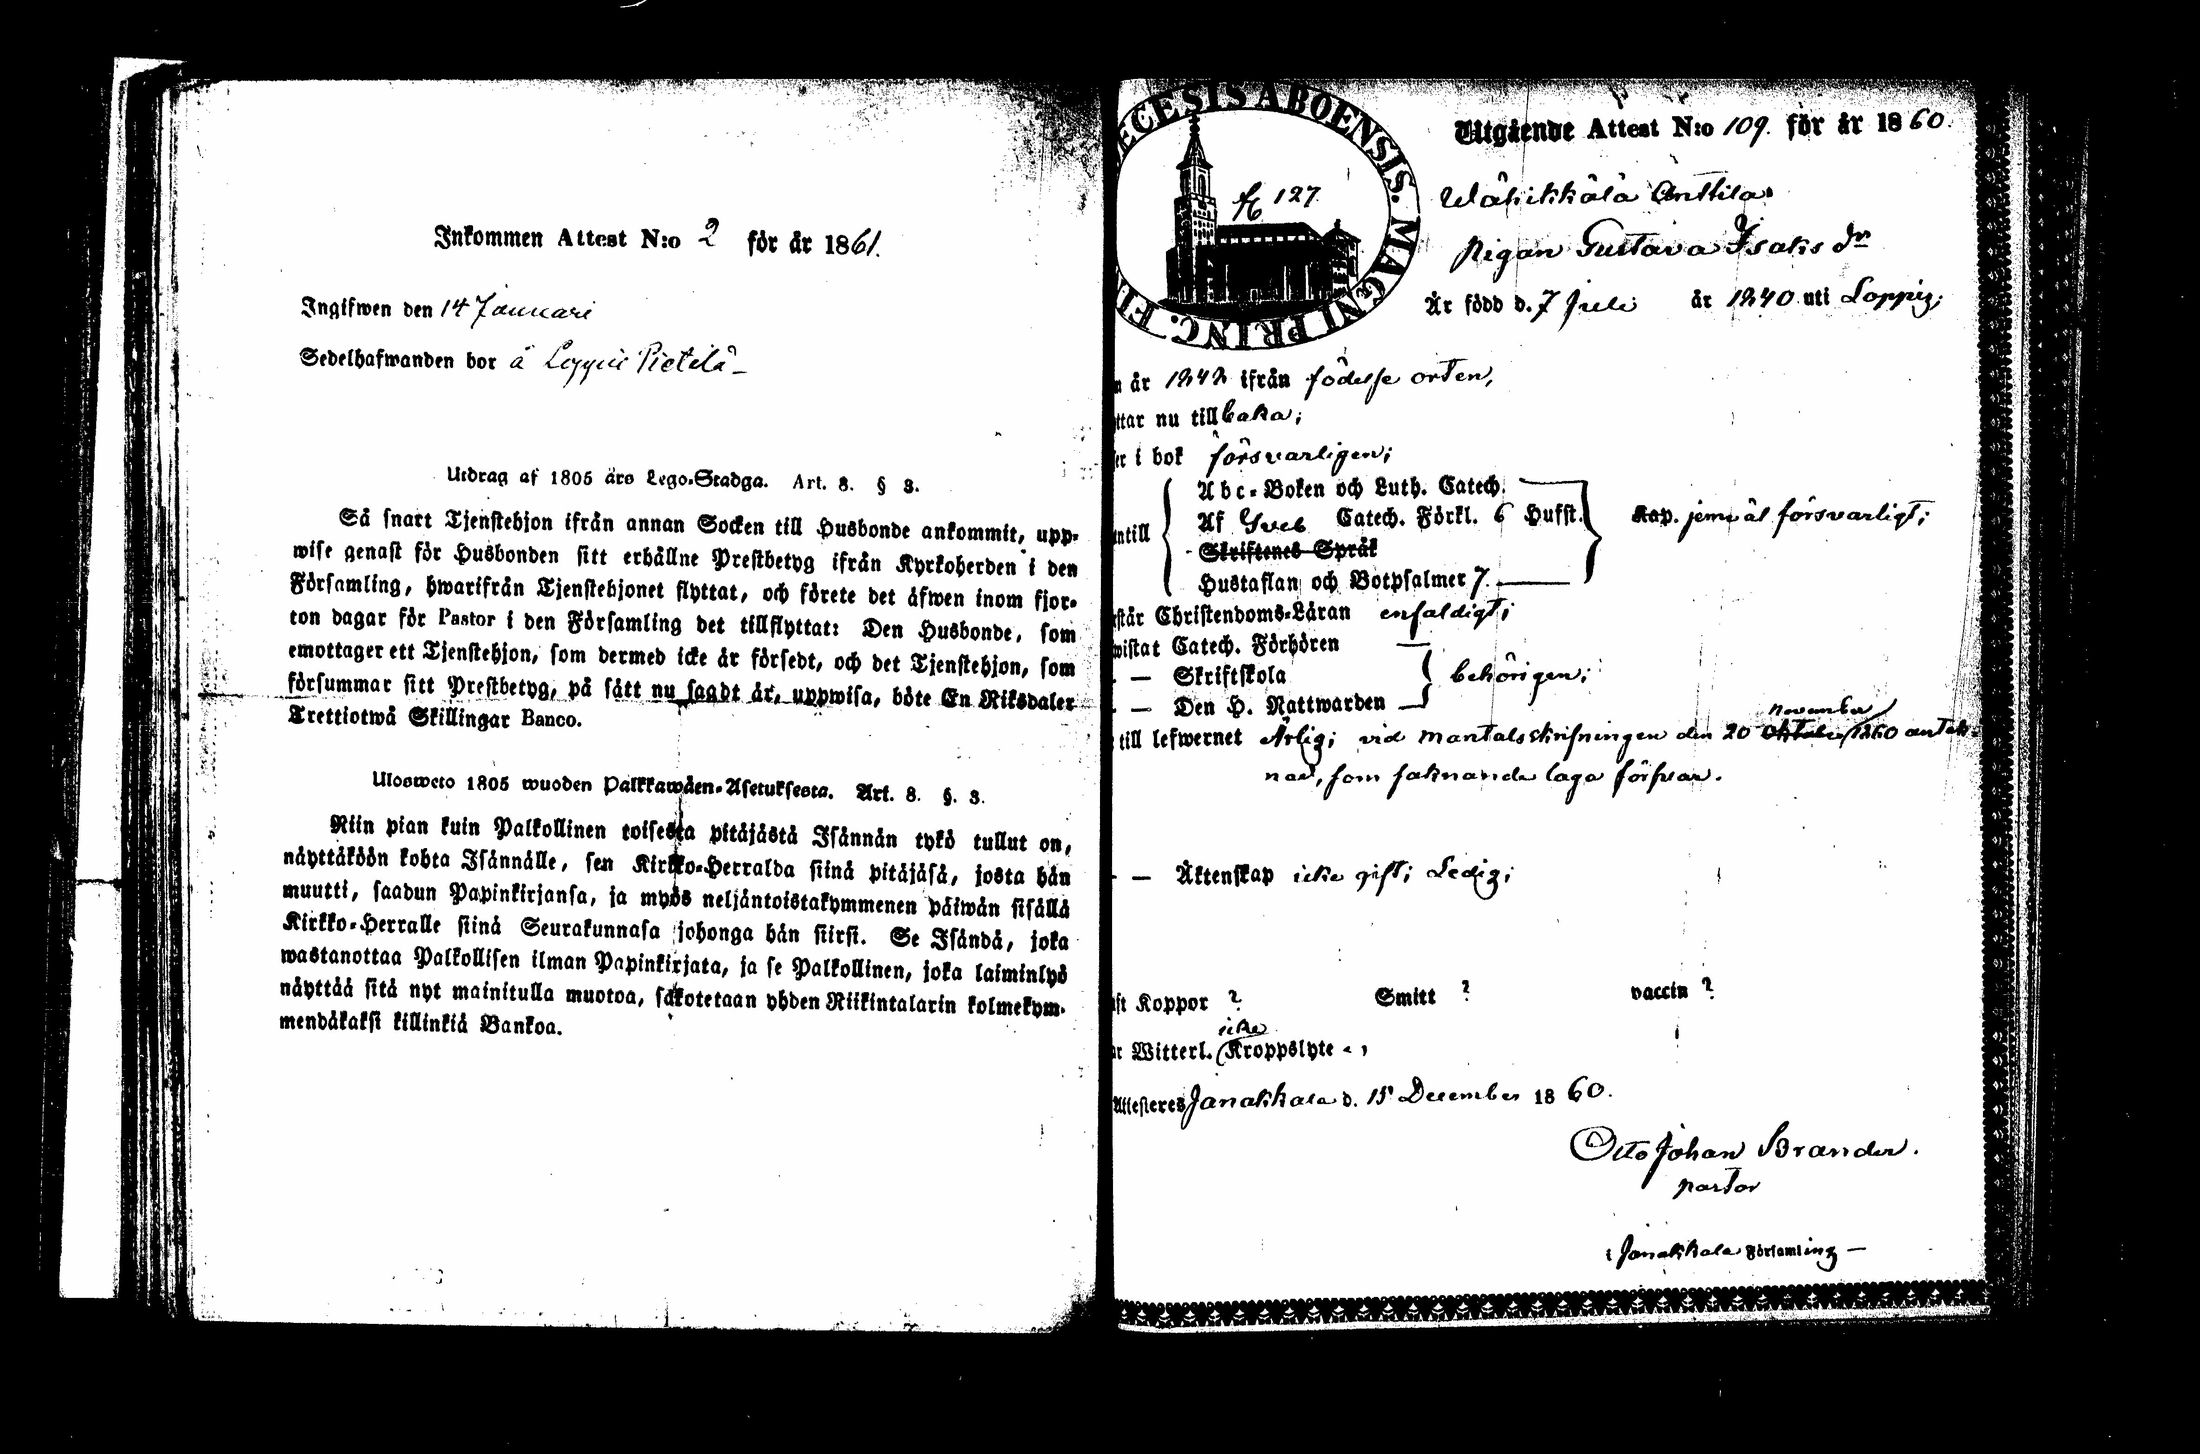 Inkommen Attest N:o 2 för år 1861.
Ingifwen den 14 Januari
Sedelhafwanden bor å Loppis Pietilä
Utdrag af 1805 års Lego-Stadga. Art. 8. § 3.
Så snart Tjenstehjon ifrån annan Socken till Husbonde ankommit, upp-
wise genast för Husbonden sitt erhållne Prestbetyg ifrån Kyrkoherden i den
Församling, hwarifrån Tjenstehjonet flyttat, och förete det äfwen inom fjor-
ton dagar för Pastor i den Församling det tillflyttat: Den Husbonde, som
emottager ett Tjenstehjon, som dermed icke är försedt, och det Tjenstehjon, som
försummar sitt Prestbetyg, på sätt nu sagdt är, uppwisa, böte En Riksdaler
Trettiotwå Skillingar Banco.
Ulosweto 1805 wuoden Palkkawäen-Asetuksesta. Art. 8. §. 3.
Niin pian kuin Palkollinen toisesta pitäjästä Isännän tykö tullut on,
näyttäköön kohta Isännälle, sen Kirkko-Herralda siinä pitäjäsä, josta hän
muutti, saadun Papinkirjansa, ja myös neljäntoistakymmenen päiwän sisällä
Kirkko-Herralle siinä Seurakunnasa johonga hän siirsi. Se Isändä, joka
wastanottaa Palkollisen ilman Papinkirjata, ja se Palkollinen, joka laiminlyö
näyttää sitä nyt mainitulla muotoa, sakotetaan yhden Riikintalarin kolmekym-
mendäkaksi killinkiä Bankoa.
ECESIS ABOENSIS. MAGNI PRINC. FI
127.
Utgående Attest N:o 109. för år 1860.
Wähikkälä Anttila
pigan Gustava Isaks dr
Är född d. 7 Juli år 1840 uti Loppis;
n år 1842 ifrån födelse orten,
ttar nu tillbaka;
er i bok försvarligen;
Abc-Boken och Luth. Catech.
ntill Af Sveb Catech. Förkl. 6 Hufst. Kap. jemväl försvarligt;
Skriftenes Språk
Hustaflan och Botpsalmer 7.
rstår Christendoms-Läran enfaldigt;
wistat Catech. Förhören
— Skriftskola behörigen;
— Den H. Nattwarden
november
till lefwernet Ärlig; vid mantalsskrifningen den 20 Oktober 1860 anteck-
nad, som saknande laga försvar.
— Äktenskap icke gift; Ledig;
ft Koppor ? Smitt ? vaccin ?
icke
ar Witterl. Kroppslyte - ,
Attesteres Janakkala d. 15 December 1860.
Otto Johan Brander.
pastor
i Janakkala Församling —